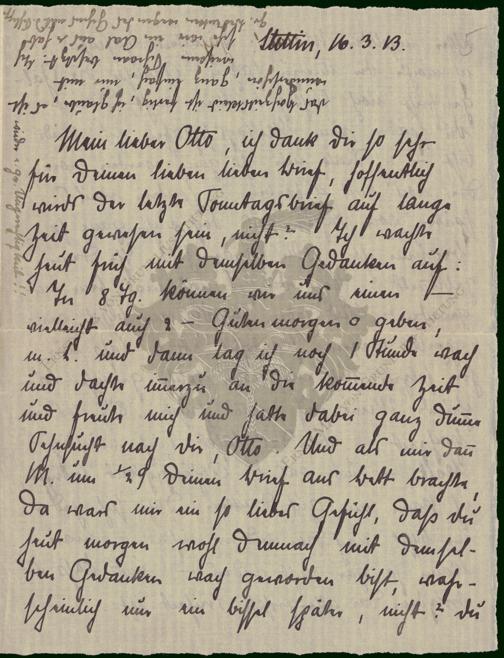 Stettin, 16.3.13.
Mein lieber Otto, ich dank dir so sehr
für Deinen lieben lieben Brief, hoffentlich
wirds der letzte Sonntagsbrief auf lange
Zeit gewesen sein, nicht? Ich wachte
heut früh mit demselben Gedanken auf:
In 8 Tg. können wir uns einen –
vielleicht auch 2 – Gutenmorgen o geben,
m. L. und dann lag ich noch 1 Stunde wach
und dachte im̄erzu an die kom̄ende Zeit
und freute mich und hatte dabei ganz dum̄e
Sehnsucht nach dir, Otto. Und als mir dan̄
M. um 1/2 9 Deinen Brief ans Bett brachte,
da wars mir ein so liebes Gefühl, daß du
heut morgen wohl demnach mit demsel-
ben Gedanken wach geworden bist, wahr-
scheinlich nur ein bissel später, nicht? du